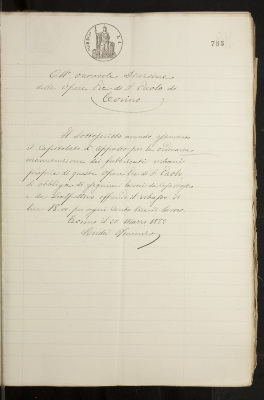 785
All' onorevole Direzione
delle Opere Pie di S. Paolo di
Torino
Il sottoscritto avendo esaminato
il capitolato d'appalto per la ordinaria
manutenzione dei fabbricati urbani
proprii di queste Opere Pie di S. Paolo
si obbliga di eseguire i lavori da
e da offrendo il ribasso di
lire 15.00 per ogni cento lire di lavoro.
Torino il 20 Marzo